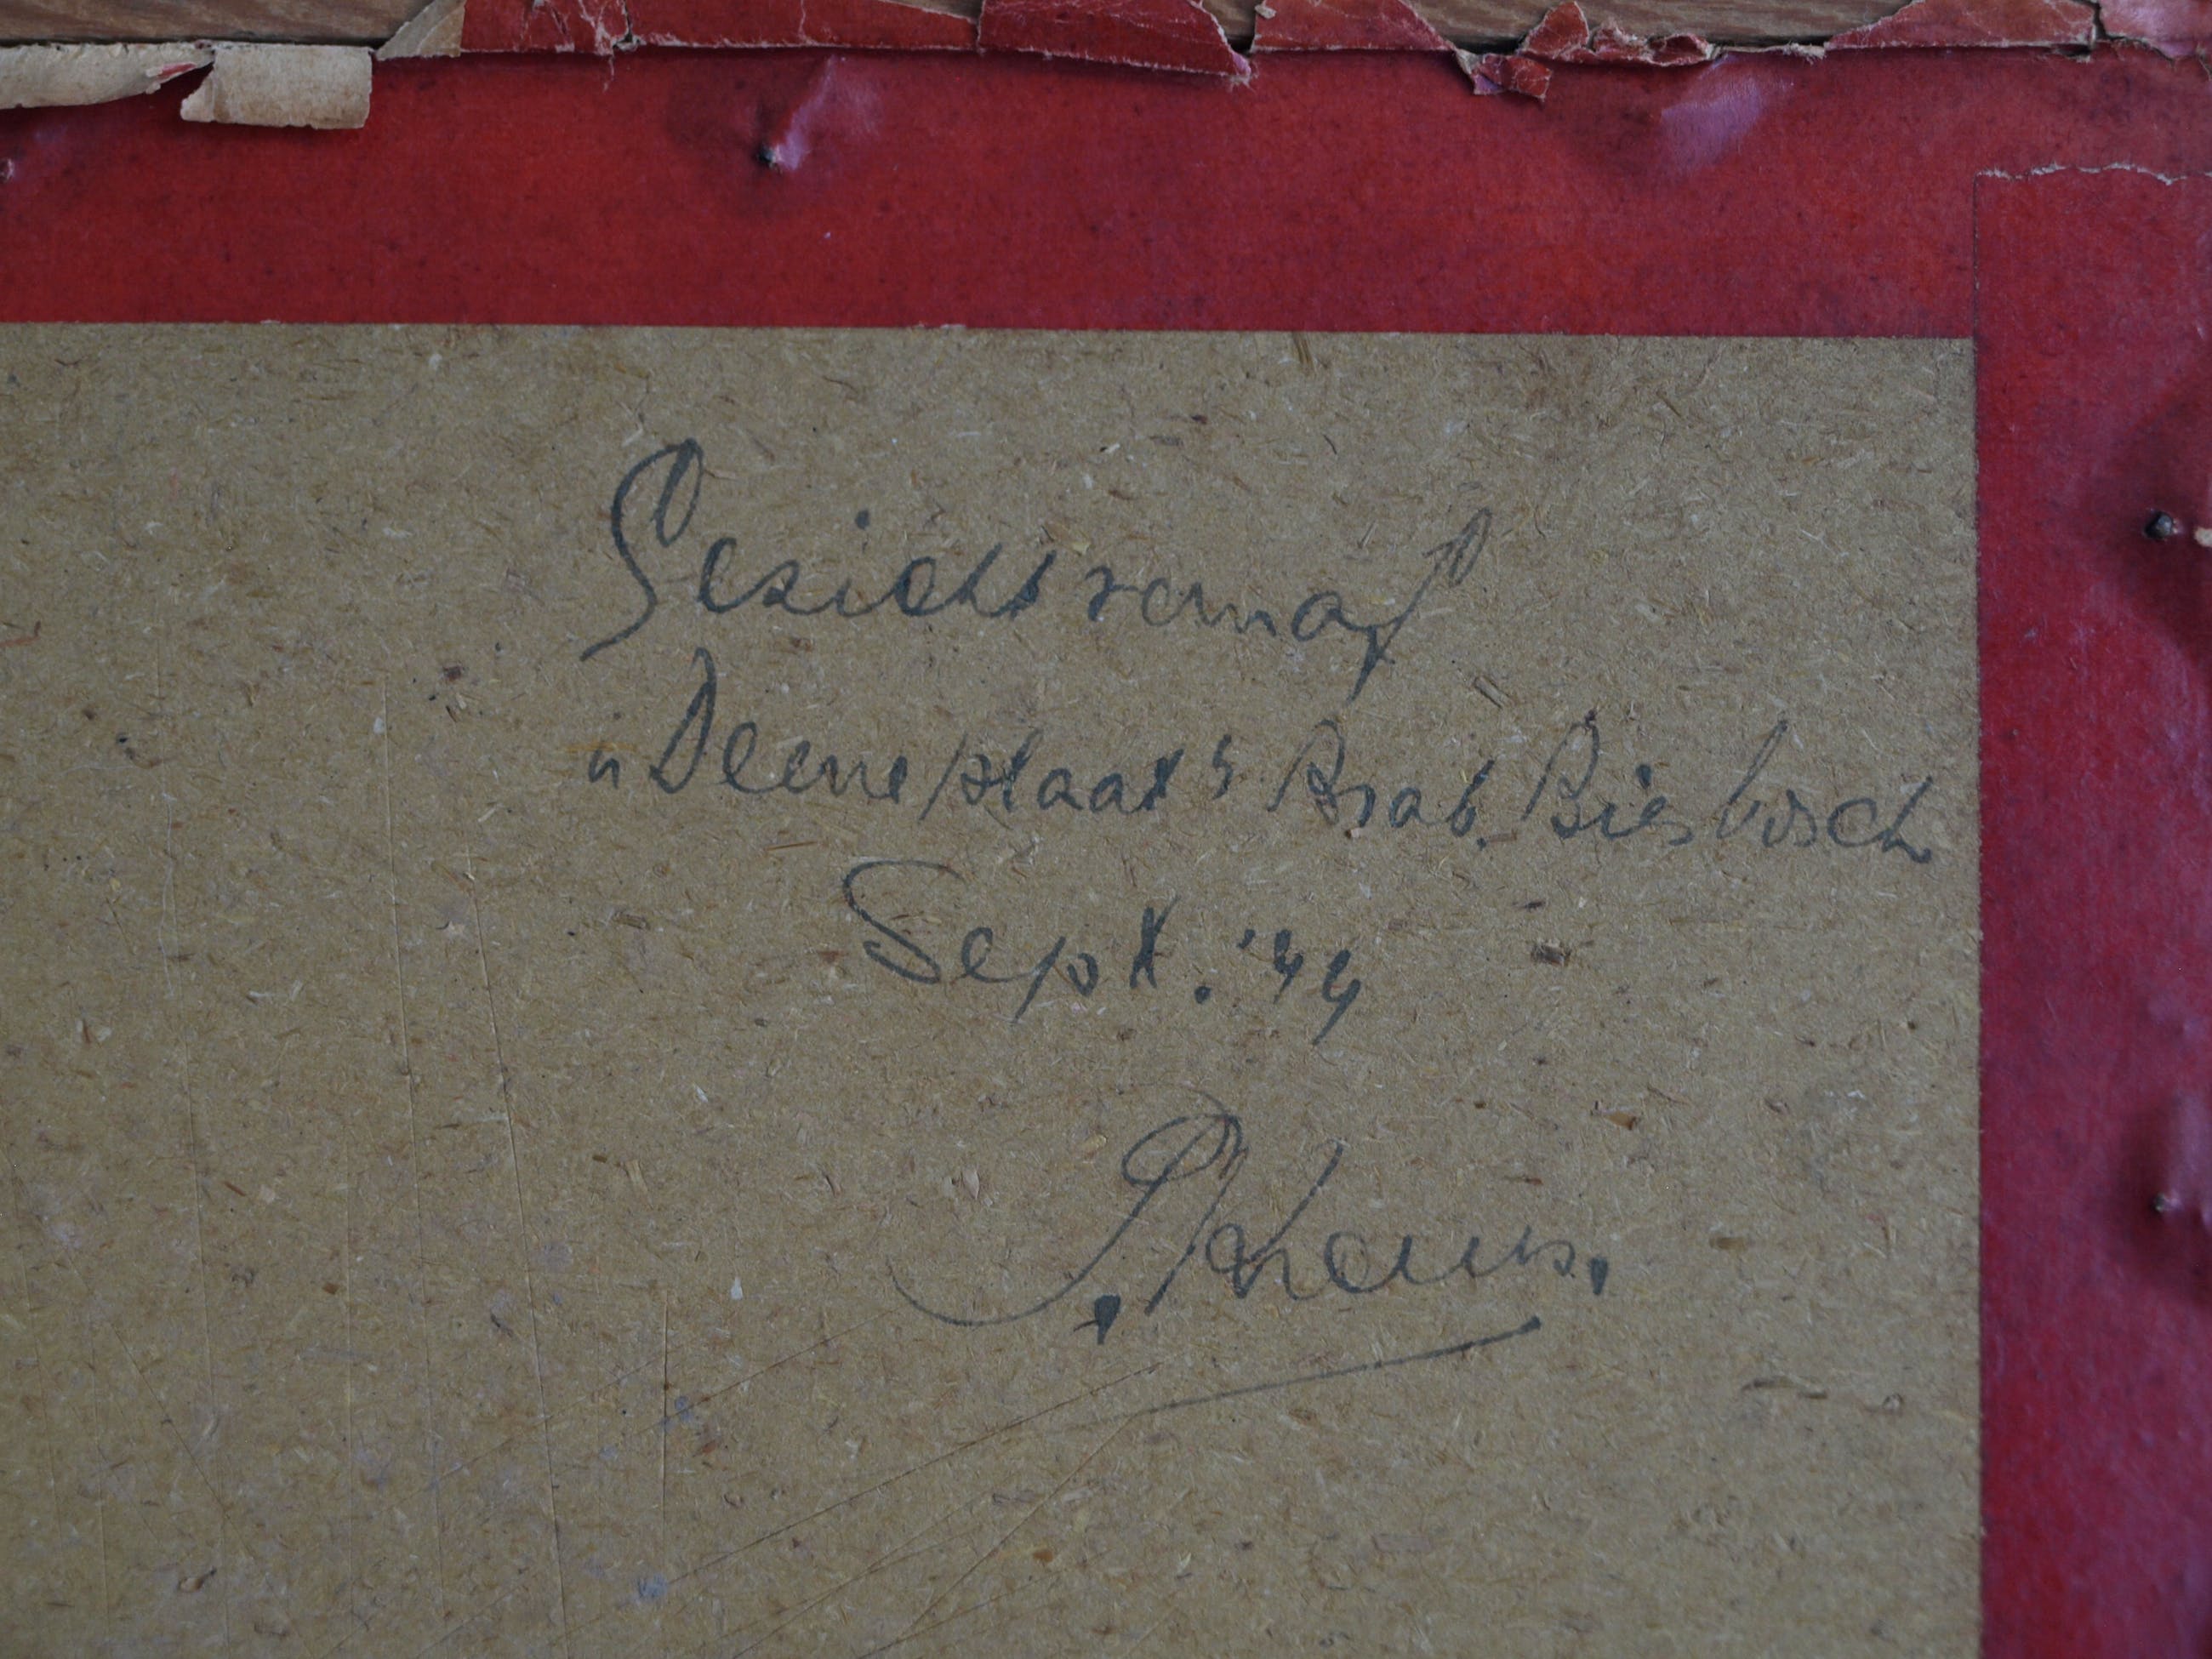 Gezicht vanaf
„Deeneplaat" Brab. Biesbosch
Sept. '44